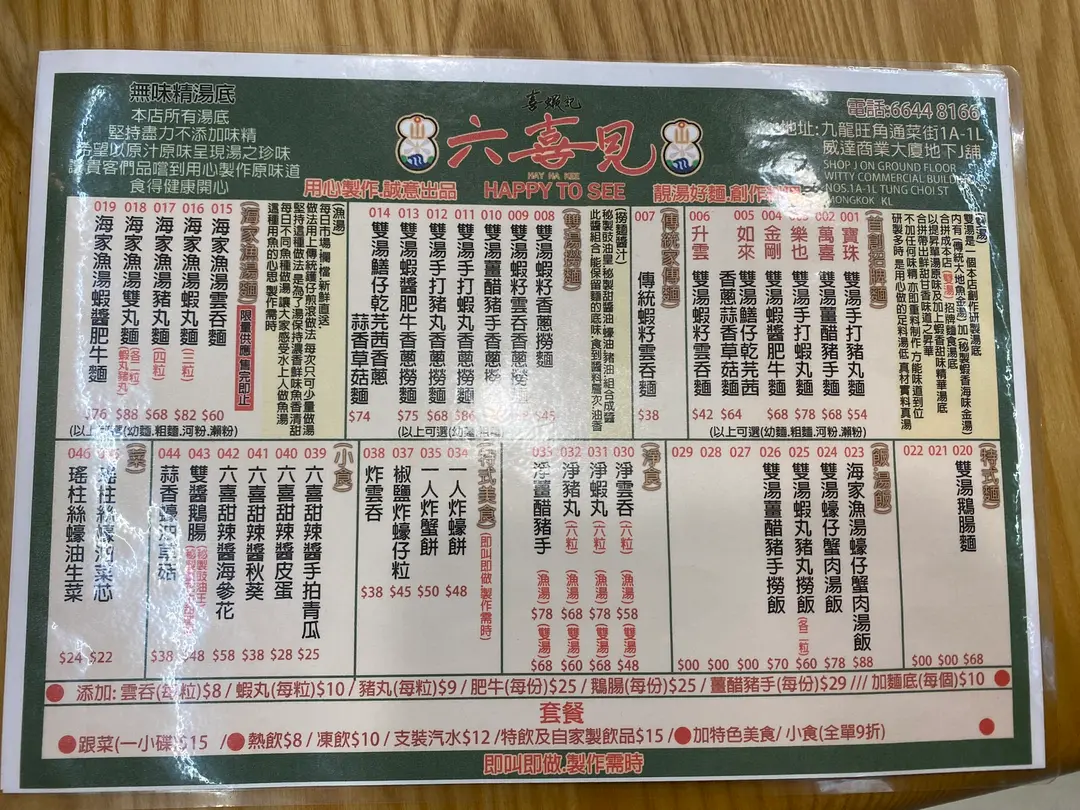 無味精湯底
本店所有湯底
堅持盡力不添加味精
希望以原汁原味呈現湯之珍味
讓貴客們品嚐到用心製作原味道
食得健康開心
喜蝦記
六喜見
HAY HA KEE
HAPPY TO SEE
用心製作.誠意出品
靚湯好麵.創作
電話:6644 8166
地址: 九龍旺角通菜街1A-1L
威達商業大廈地下J舖
SHOP J ON GROUND FLOOR
WITTY COMMERCIAL BUILDING
NOS.1A-1L TUNG CHOI ST
MONGKOK KL
(雙湯)
雙湯是一個本店創作研製湯底
內有(傳統大地魚金湯)加(秘製蝦香海味金湯)
合拼成本店(雙湯)招牌麵食湯底
以提昇單湯原味及加上蝦香甜味精華湯底
合拼帶出鮮甜甘香味道之昇華
不加任何味精 亦即重料制作 方能味道到位
研製多時 是用心做的足料湯低 真材實料真湯
(首創招牌麵)
001 寶珠 雙湯手打豬丸麵 $54
002 萬喜 雙湯薑醋豬手麵 $68
003 樂也 雙湯手打蝦丸麵 $78
004 金剛 雙湯蝦醬肥牛麵 $68
005 如來 雙湯鱔仔乾芫茜
香蔥蒜香草菇麵 $64
006 升雲 雙湯蝦籽雲吞麵 $42
(以上可選(幼麵.粗麵.河粉.瀨粉)
(傳統家傳麵)
007 傳統蝦籽雲吞麵 $38
(雙湯撈麵)
(撈麵醬汁)
秘製豉油皇 秘製甜醬油 蠔油 豬油組合成醬
此醬組合 能保留麵的底味 食到醬料層次 油香
008 雙湯蝦籽香蔥撈麵 $45
009 雙湯蝦籽雲吞香蔥撈麵
010 雙湯薑醋豬手香蔥撈麵
011 雙湯手打蝦丸香蔥撈麵 $86
012 雙湯手打豬丸香蔥撈麵 $68
013 雙湯蝦醬肥牛香蔥撈麵 $75
014 雙湯鱔仔乾芫茜香蔥
蒜香草菇麵 $74
(以上可選(幼麵.粗麵
(漁湯)
每日市場欄檔 新鮮直送
做法用上傳統鑊仔煎滾做法 每次只可少量做湯
堅持這種做法 是為了湯保持濃香鮮味魚香清甜
每日不同魚種做湯 讓大家感受水上人做魚湯
這種用魚的心思 製作需時
(海家漁湯麵)
限量供應 售完即止
015 海家漁湯雲吞麵 $60
016 海家漁湯蝦丸麵(三粒) $82
017 海家漁湯豬丸麵(四粒) $68
018 海家漁湯雙丸麵(各二粒)
(蝦丸豬丸) $88
019 海家漁湯蝦醬肥牛麵 $76
(幼麵.粗麵.河粉.瀨粉)
(特式麵)
020 雙湯鵝腸麵 $68
021 $00
022 $00
(飯.湯飯)
023 海家漁湯蠔仔蟹肉湯飯 $88
024 雙湯蠔仔蟹肉湯飯 $78
025 雙湯蝦丸豬丸撈飯(各二粒) $60
026 雙湯薑醋豬手撈飯 $70
027 $00
028 $00
029 $00
(淨食)
030 淨雲吞(六粒) (漁湯)$58 (雙湯)$48
031 淨蝦丸(六粒) (漁湯)$78 (雙湯)$68
032 淨豬丸(六粒) (漁湯)$68 (雙湯)$60
033 淨薑醋豬手 (漁湯)$78 (雙湯)$68
(特式美食)(即叫即做 製作需時)
034 一人炸蠔餅 $48
035 一人炸蟹餅 $50
037 椒鹽炸蠔仔粒 $45
038 炸雲吞 $38
(小食)
039 六喜甜辣醬手拍青瓜 $25
040 六喜甜辣醬皮蛋 $28
041 六喜甜辣醬秋葵 $38
042 六喜甜辣醬海參花 $58
043 雙醬鵝腸 $48
044 蒜香蠔油草菇 $38
(菜)
瑤柱絲蠔油菜芯 $22
046 瑤柱絲蠔油生菜 $24
添加: 雲吞(每粒)$8 / 蝦丸(每粒)$10 / 豬丸(每粒)$9 / 肥牛(每份)$25 / 鵝腸(每份)$25 / 薑醋豬手(每份)$29 /// 加麵底(每個)$10
套餐
跟菜(一小碟)$15 / 熱飲$8 / 凍飲$10 / 支裝汽水$12 /特飲及自家製飲品$15 / 加特色美食/ 小食(全單9折)
即叫即做.製作需時